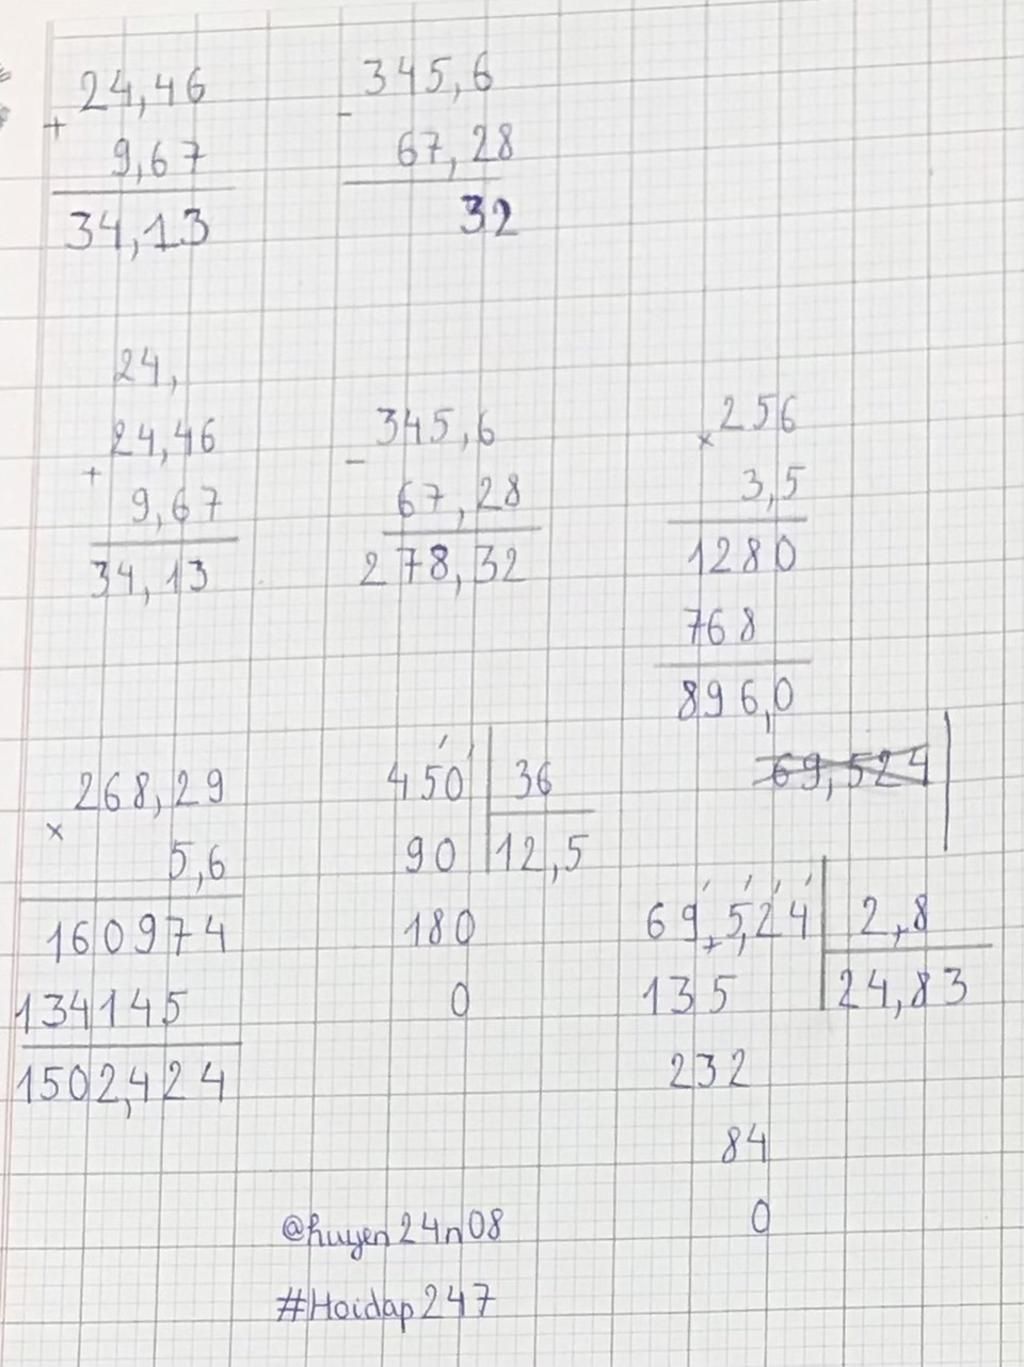 24,46
+
9,67
34,13
345,6
-
67,28
32
24,
24,46
+
9,67
34,13
345,6
-
67,28
278,32
256
×
3,5
1280
768
896,0
268,29
×
5,6
160974
134145
1502,424
450 36
90 12,5
180
0
69,524
69,524 2,8
135 24,83
232
84
0
@huyen24n08
#Hoidap247